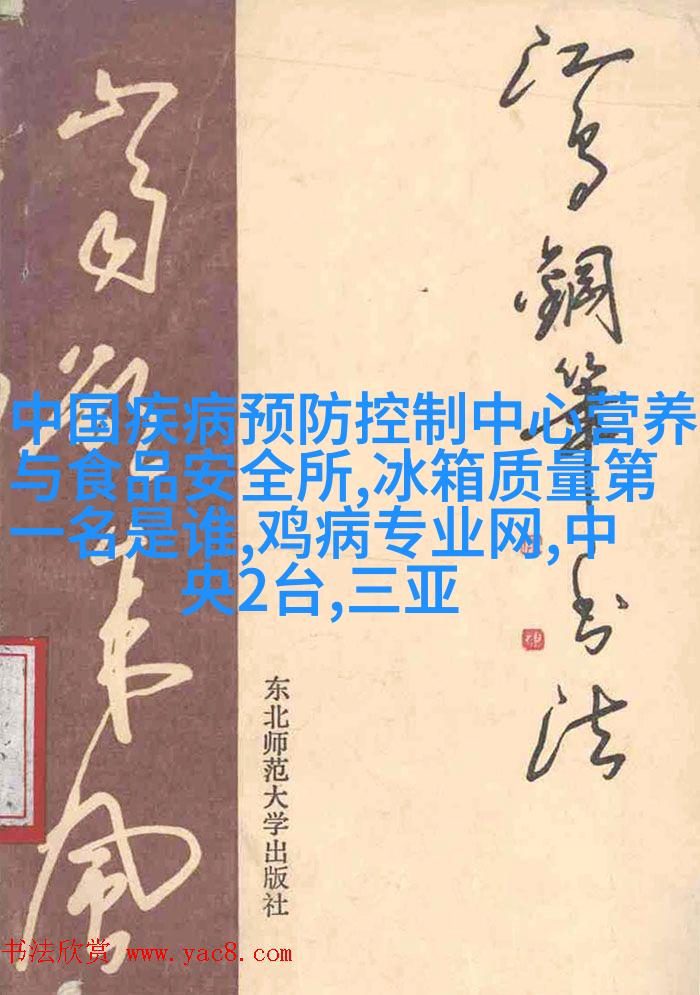 江鸟鋼筆书法
中国疾病预防控制中心营养
与食品安全所,冰箱质量第
一名是谁,鸡病专业网,中
央2台,三亚
东北师范大学出版社
书法欣赏 www.yac8.com